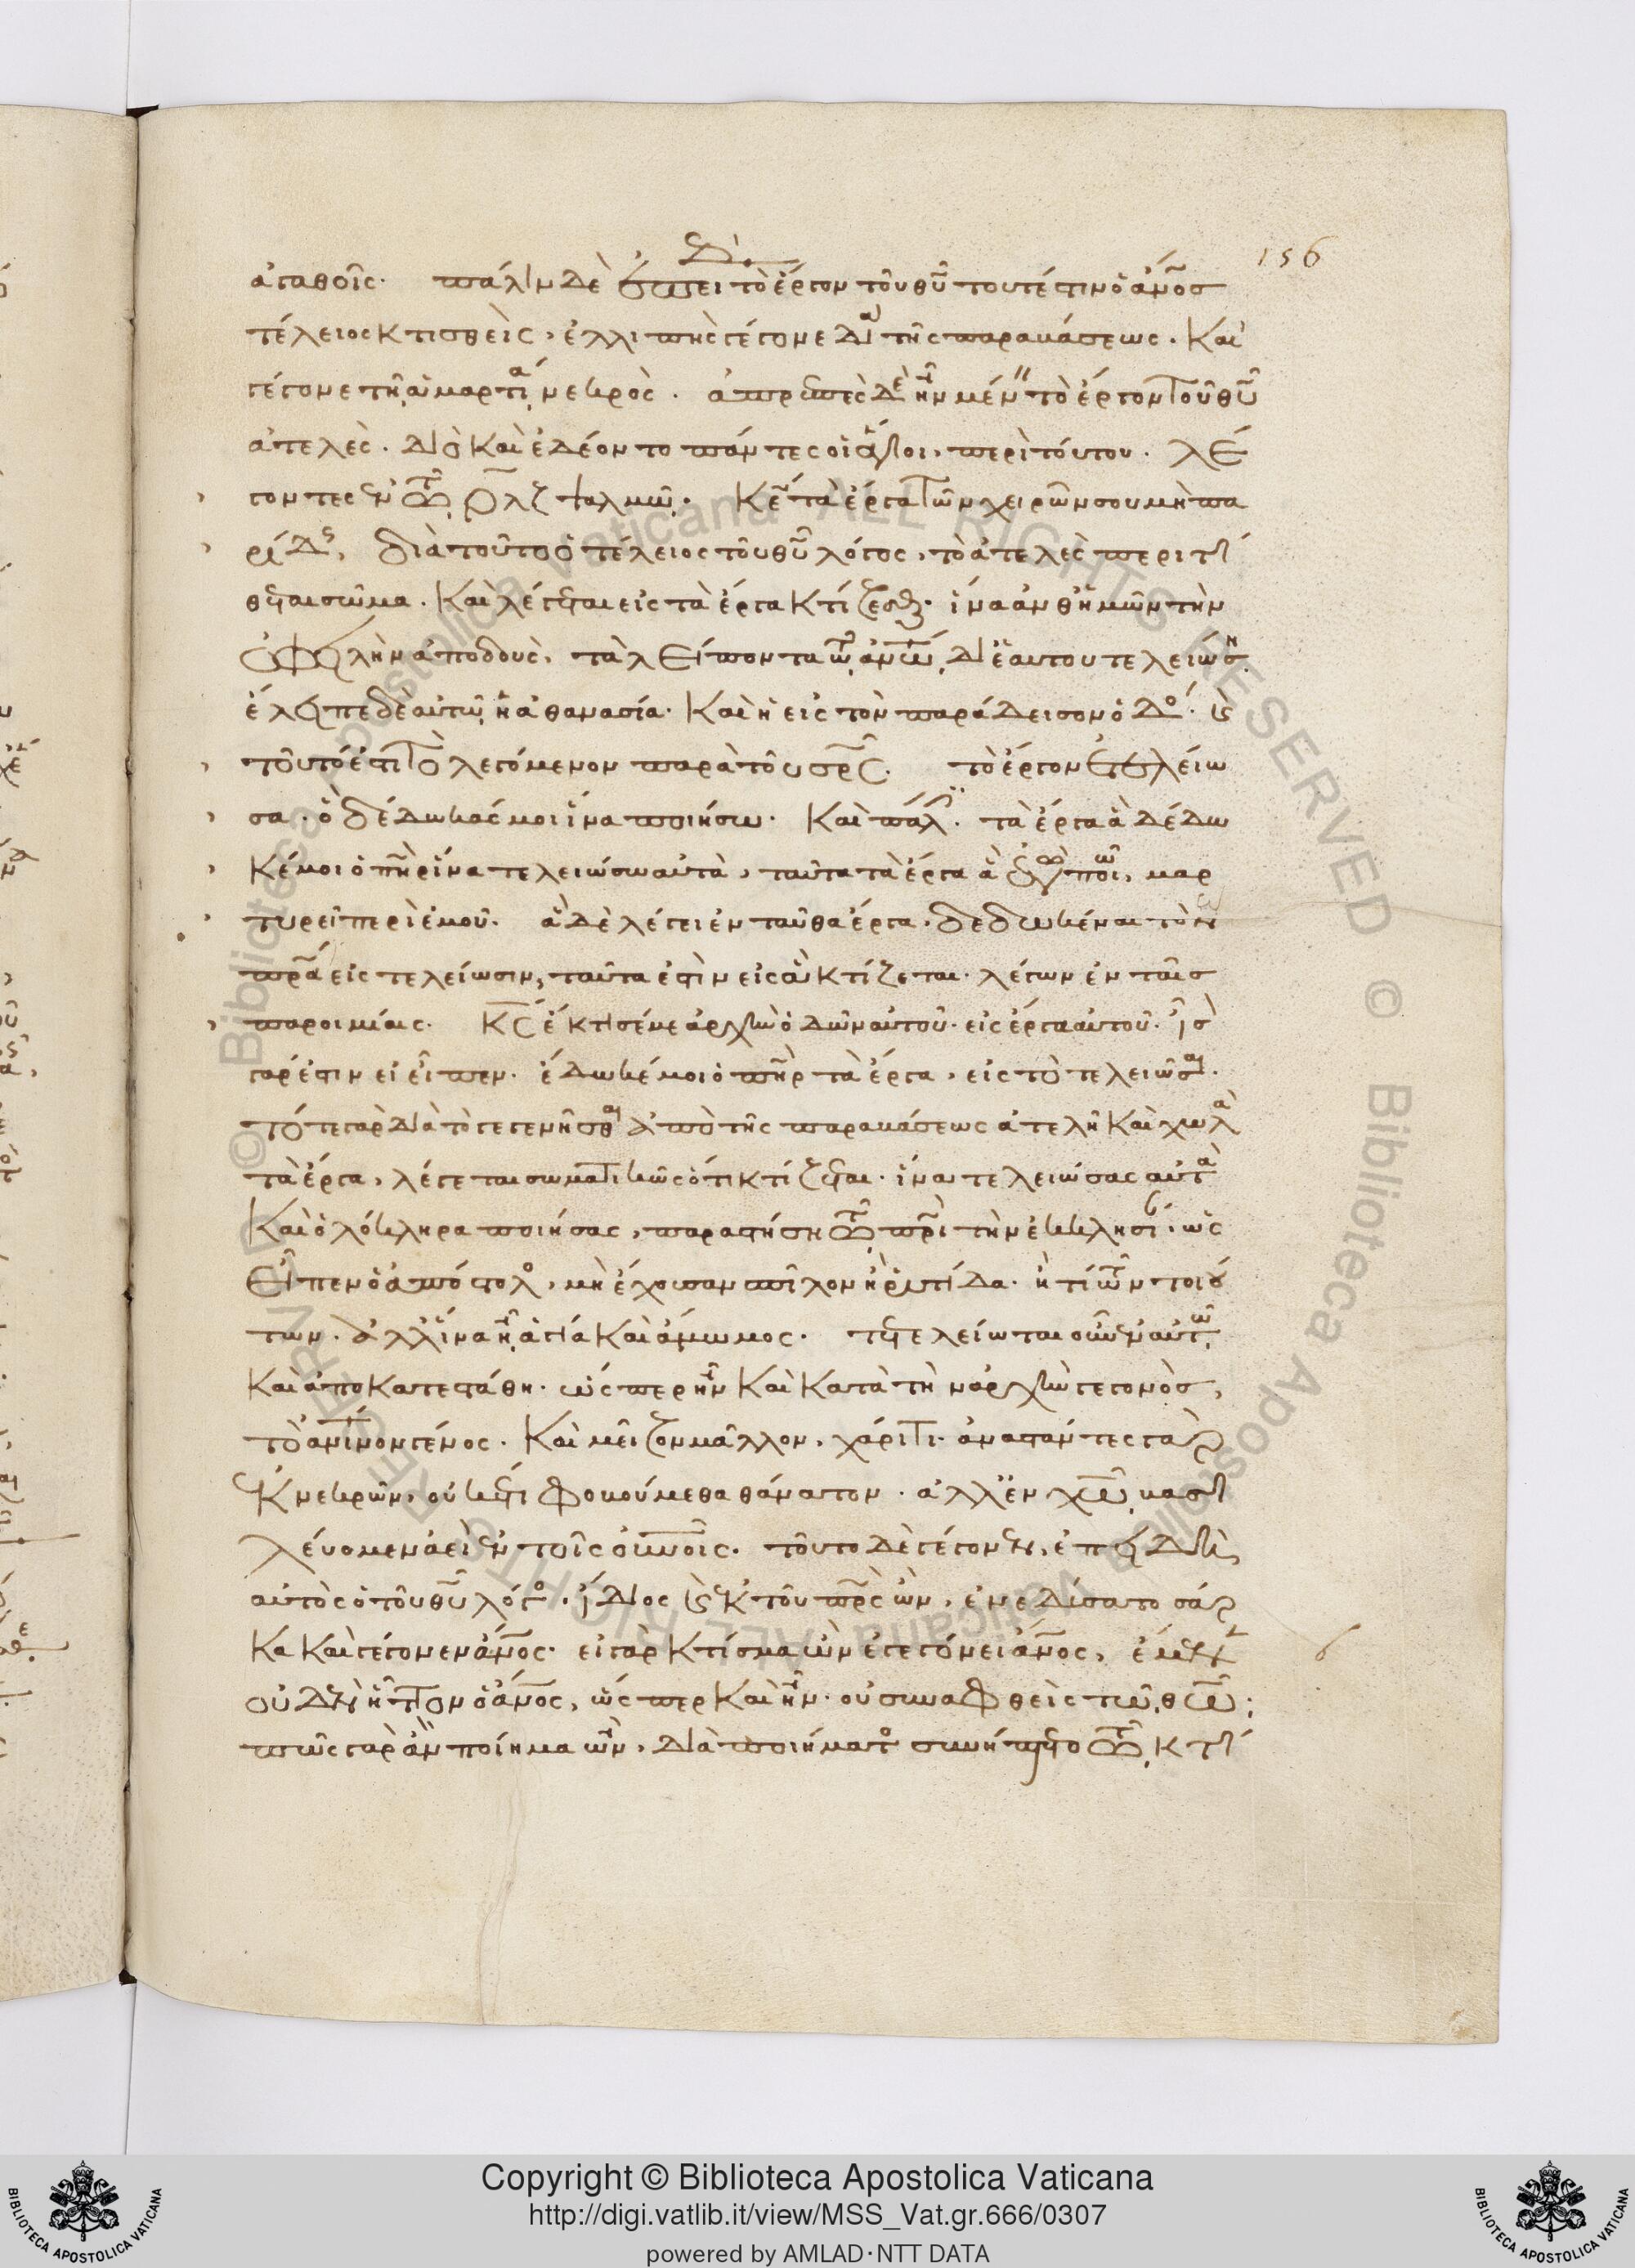 156
ἀγαθοῖς. πάλιν δὲ ἐπεὶ τὸ ἔργον τοῦ θυ τουτέστιν ὁ ἄνος
τέλειος κτισθεὶς, ἐλλιπὴς γέγονε διὰ τῆς παραβάσεως. καὶ
γέγονε τῆ ἁμαρτία νεκρὸς. ἀπρεπὲς δὲ ἦν μένειν τὸ ἔργον τοῦ θυ
ἀτελὲς. διὸ καὶ ἐδέοντο πάντες οἱ ἅγιοι, περὶ τούτου. λέ
γοντες ἐν τῶ ρλζ ψαλμῶ. κε τὰ ἔργα τῶν χειρῶν σου μὴ πα
ρίδης, διὰ τοῦτο ὁ τέλειος τοῦ θυ λόγος, τὸ ἀτελὲς περιτί
θεται σῶμα. καὶ λέγεται εἰς τὰ ἔργα κτίζεσθαι. ἵνα ἀνθ ἡμῶν τὴν
ὀφειλὴν ἀποδοὺς, τὰ λείποντα τῶ ἀνω δι ἑαυτοῦ τελειώση
ἔλειπε δὲ αὐτῶ ἡ ἀθανασία. καὶ ἡ εἰς τὸν παράδεισον ὁδός.
τοῦτό ἐστι τὸ λεγόμενον παρὰ τοῦ σρς. τὸ ἔργον ἐτελείω
σα. ὃ δέδωκάς μοι ἵνα ποιήσω. καὶ πάλιν. τὰ ἔργα ἃ δέδω
κέ μοι ὁ πηρ ἵνα τελειώσω αὐτὰ, ταῦτα τὰ ἔργα ἃ ἐγὼ ποιῶ, μαρ
τυρεῖ περὶ ἐμοῦ. ἃ δὲ λέγει ἐνταῦθα ἔργα. δεδωκέναι αὐτῶ τὸν
πρα εἰς τελείωσιν, ταῦτα ἐστὶν εἰς ἃ κτίζεται. λέγων ἐν ταῖς
παροιμίαις. κς ἔκτισέ με ἀρχὴν ὁδῶν αὐτοῦ. εἰς ἔργα αὐτοῦ. ἴσον
γάρ ἐστιν εἰ εἶπεν. ἔδωκέ μοι ὁ πηρ τὰ ἔργα, εἰς τὸ τελειῶσαι.
τότε γὰρ διὰ τὸ γεγενῆσθαι ἀπὸ τῆς παραβάσεως ἀτελῆ καὶ χωλὰ
τὰ ἔργα, λέγεται σωματικῶς ὅτι κτίζεται. ἵνα τελειώσας αὐτὰ
καὶ ὁλόκληρα ποιήσας, παραστήση τῶ πρὶ τὴν ἐκκλησίαν, ὡς
εἶπεν ὁ ἀπόστολος, μὴ ἔχουσαν σπῖλον ἢ ῥυτίδα. ἤ τι τῶν τοιού
των. ἀλλ ἵνα ἦ ἁγία καὶ ἄμωμος. τετελείωται οὖν ἐν αὐτῶ
καὶ ἀποκατεστάθη. ὥσπερ ἦν καὶ κατὰ τὴν ἀρχὴν γεγονὸς,
τὸ ἀνινον γένος. καὶ μεῖζον μᾶλλον. χάριτι. ἀναστάντες γὰρ
ἐκ νεκρῶν, οὐκέτι φοβούμεθα θάνατον. ἀλλ ἐν χω βασι
λεύομεν ἀεὶ ἐν τοῖς οὐνοῖς. τοῦτο δὲ γέγονεν, ἐπειδὴ
αὐτὸς ὁ τοῦ θυ λόγος. ἴδιος ἐκ τοῦ πρς ὢν, ἐνεδύσατο σάρ
κα καὶ γέγονεν ἄνος. εἰ γὰρ κτίσμα ὢν ἐγεγόνει ἄνος, ἔμενεν
οὐδὲν ἧττον ὁ ἄνος, ὥσπερ καὶ ἦν. οὐ συναφθεὶς τῶ θω.
πῶς γὰρ ἂν ποίημα ὢν, διὰ ποιήματος συνήπτετο τῶ κτί
Copyright © Biblioteca Apostolica Vaticana
http://digi.vatlib.it/view/MSS_Vat.gr.666/0307
powered by AMLAD·NTT DATA